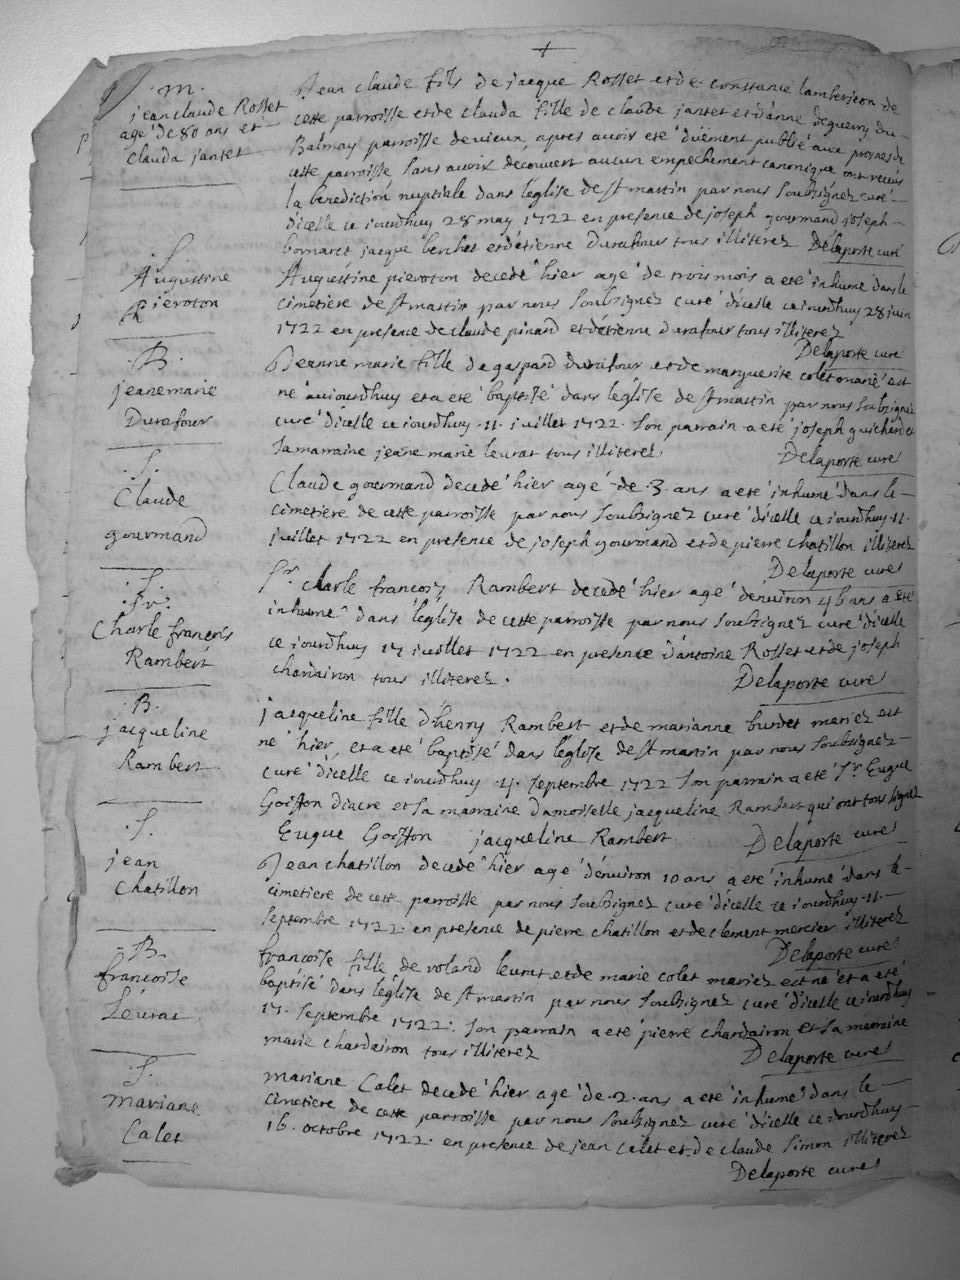 +
m.
jean claude Rosset
agé de 80 ans et
clauda jantet
Jean claude fils de jacque Rosset et de constance lamberjeon de
cette parroisse et de clauda fille de claude jantet et d'anne deguerry du
Balmay parroisse de vieux, apres avoir eté duëment publié aux prosnes de
cette parroisse sans avoir decouvert aucun empechement canonique ont receüs
la benediction nuptialle dans leglise de st martin par nous soubsignez curé
dicelle ce jourdhuy 28 may 1722 en presence de joseph gourmand joseph
bornaret jacque berchet et détienne durafour tous illiterez Delaporte curé
S.
Augustine
Pieroton
Augustine pieroton decedé hier agé de trois mois a eté inhumé dans le
cimetiere de st martin par nous soubsignez curé dicelle ce jourdhuy 28 juin
1722 en presence de claude pinard et détienne durafour tous illiterez
Delaporte curé
B.
jeanemarie
Durafour
Jeanne marie fille de gaspard durafour et de marguerite colet marié est
né aujourdhuy et a eté baptisé dans leglise de st martin par nous soubsignez
curé dicelle ce jourdhuy 11 juillet 1722. son parrain a eté joseph guichardet
sa marraine jeane marie leurat tous illiterez Delaporte curé
S.
Claude
gourmand
Claude gourmand decedé hier agé de 3 ans a eté inhumé dans le
cimetiere de cette parroisse par nous soubsignez curé dicelle ce jourdhuy 11
juillet 1722 en presence de joseph gourmand et de pierre chatillon illiterez
Delaporte curé
S.
Sr.
Charle françois
Rambert
Sr. charle françois Rambert decedé hier agé denviron 46 ans a eté
inhumé dans leglise de cette parroisse par nous soubsignez curé dicelle
ce jourdhuy 17 juillet 1722 en presence dantoine Rosset et de joseph
chardairon tous illiterez. Delaporte curé
B.
jacqueline
Rambert
jacqueline fille d'henry Rambert et de marianne burdet mariez est
né hier, et a eté baptisé dans leglise de st martin par nous soubsignez
curé dicelle ce jourdhuy 4 septembre 1722 son parrain a eté Sr Eugue
Goiffon diacre et sa marraine damoiselle jacqueline Rambert qui ont tous signez
Eugue Goiffon jacqueline Rambert Delaporte curé
S.
jean
Chatillon
Jean chatillon decedé hier agé denviron 10 ans a eté inhumé dans le
cimetiere de cette parroisse par nous soubsignez curé dicelle ce jourdhuy 11
septembre 1722. en presence de pierre chatillon et de clement mercier illiterez
Delaporte curé
B.
francoise
Leurat
francoise fille de roland leurat et de marie colet mariez est né et a eté
baptisé dans leglise de st martin par nous soubsignez curé dicelle ce jourdhuy
17. septembre 1722. son parrain a eté pierre chardairon et sa marraine
marie chardairon tous illiterez Delaporte curé
S.
mariane
Calet
mariane Calet decedé hier agé de 2 ans a eté inhumé dans le
cimetiere de cette parroisse par nous soubsignez curé dicelle ce jourdhuy
16. octobre 1722. en presence de jean Calet et de claude simon illiterez
Delaporte curé